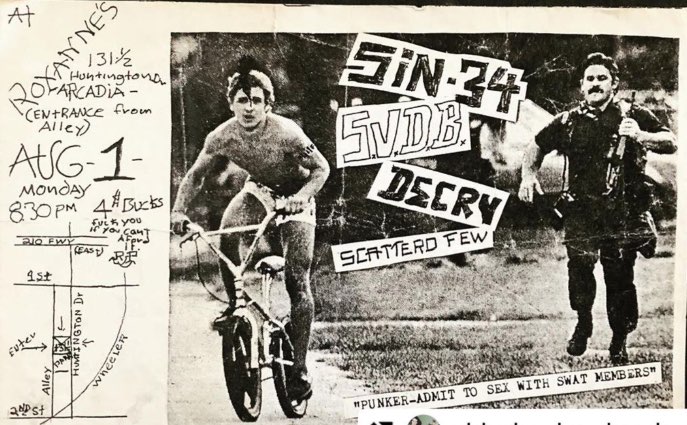 At
ROXANNE'S
131 1/2
Huntington Dr
ARCADIA-
(ENTRANCE from
Alley)
AUG-1-
MONDAY
8:30 PM
4$ Bucks
fuck you
if you can't
afford
it.
210 FWY
(EAST)
1st St
Enter
Alley
HUNTINGTON Dr
WHEELER
2ND St
SIN·34
S.V.D.B.
DECRY
SCATTERD FEW
"PUNKER-ADMIT TO SEX WITH SWAT MEMBERS"